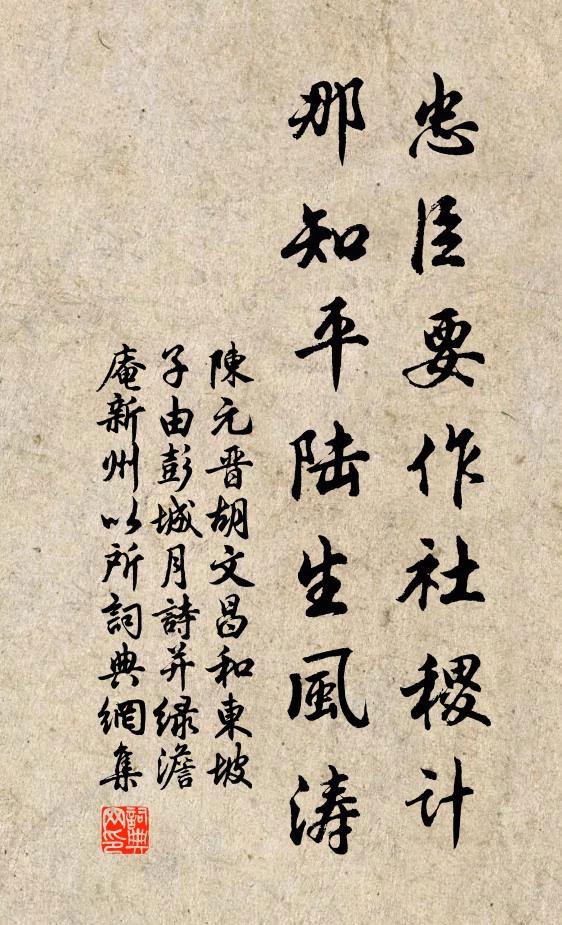 忠臣要作社稷計
那知平陆生風涛
陳元晋胡文昌和東坡
子由彭城月詩并緑澹
庵新州以所詞典網集
詞典网印